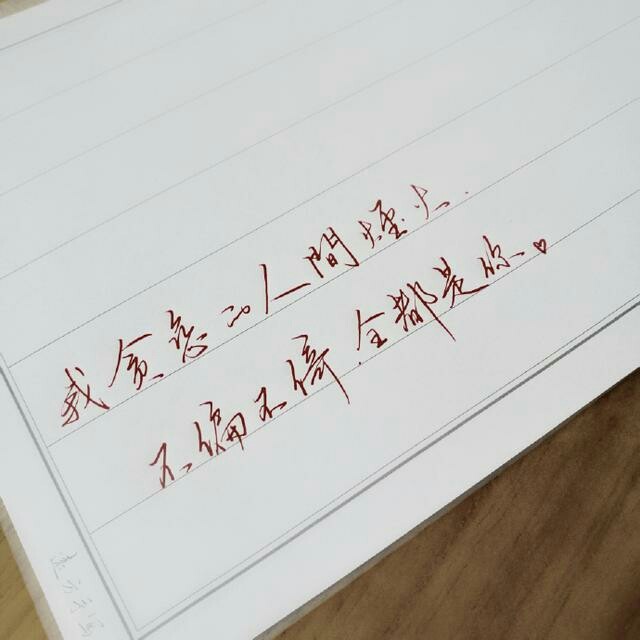 我贪恋的人間煙火.
不偏不倚全都是你.♥